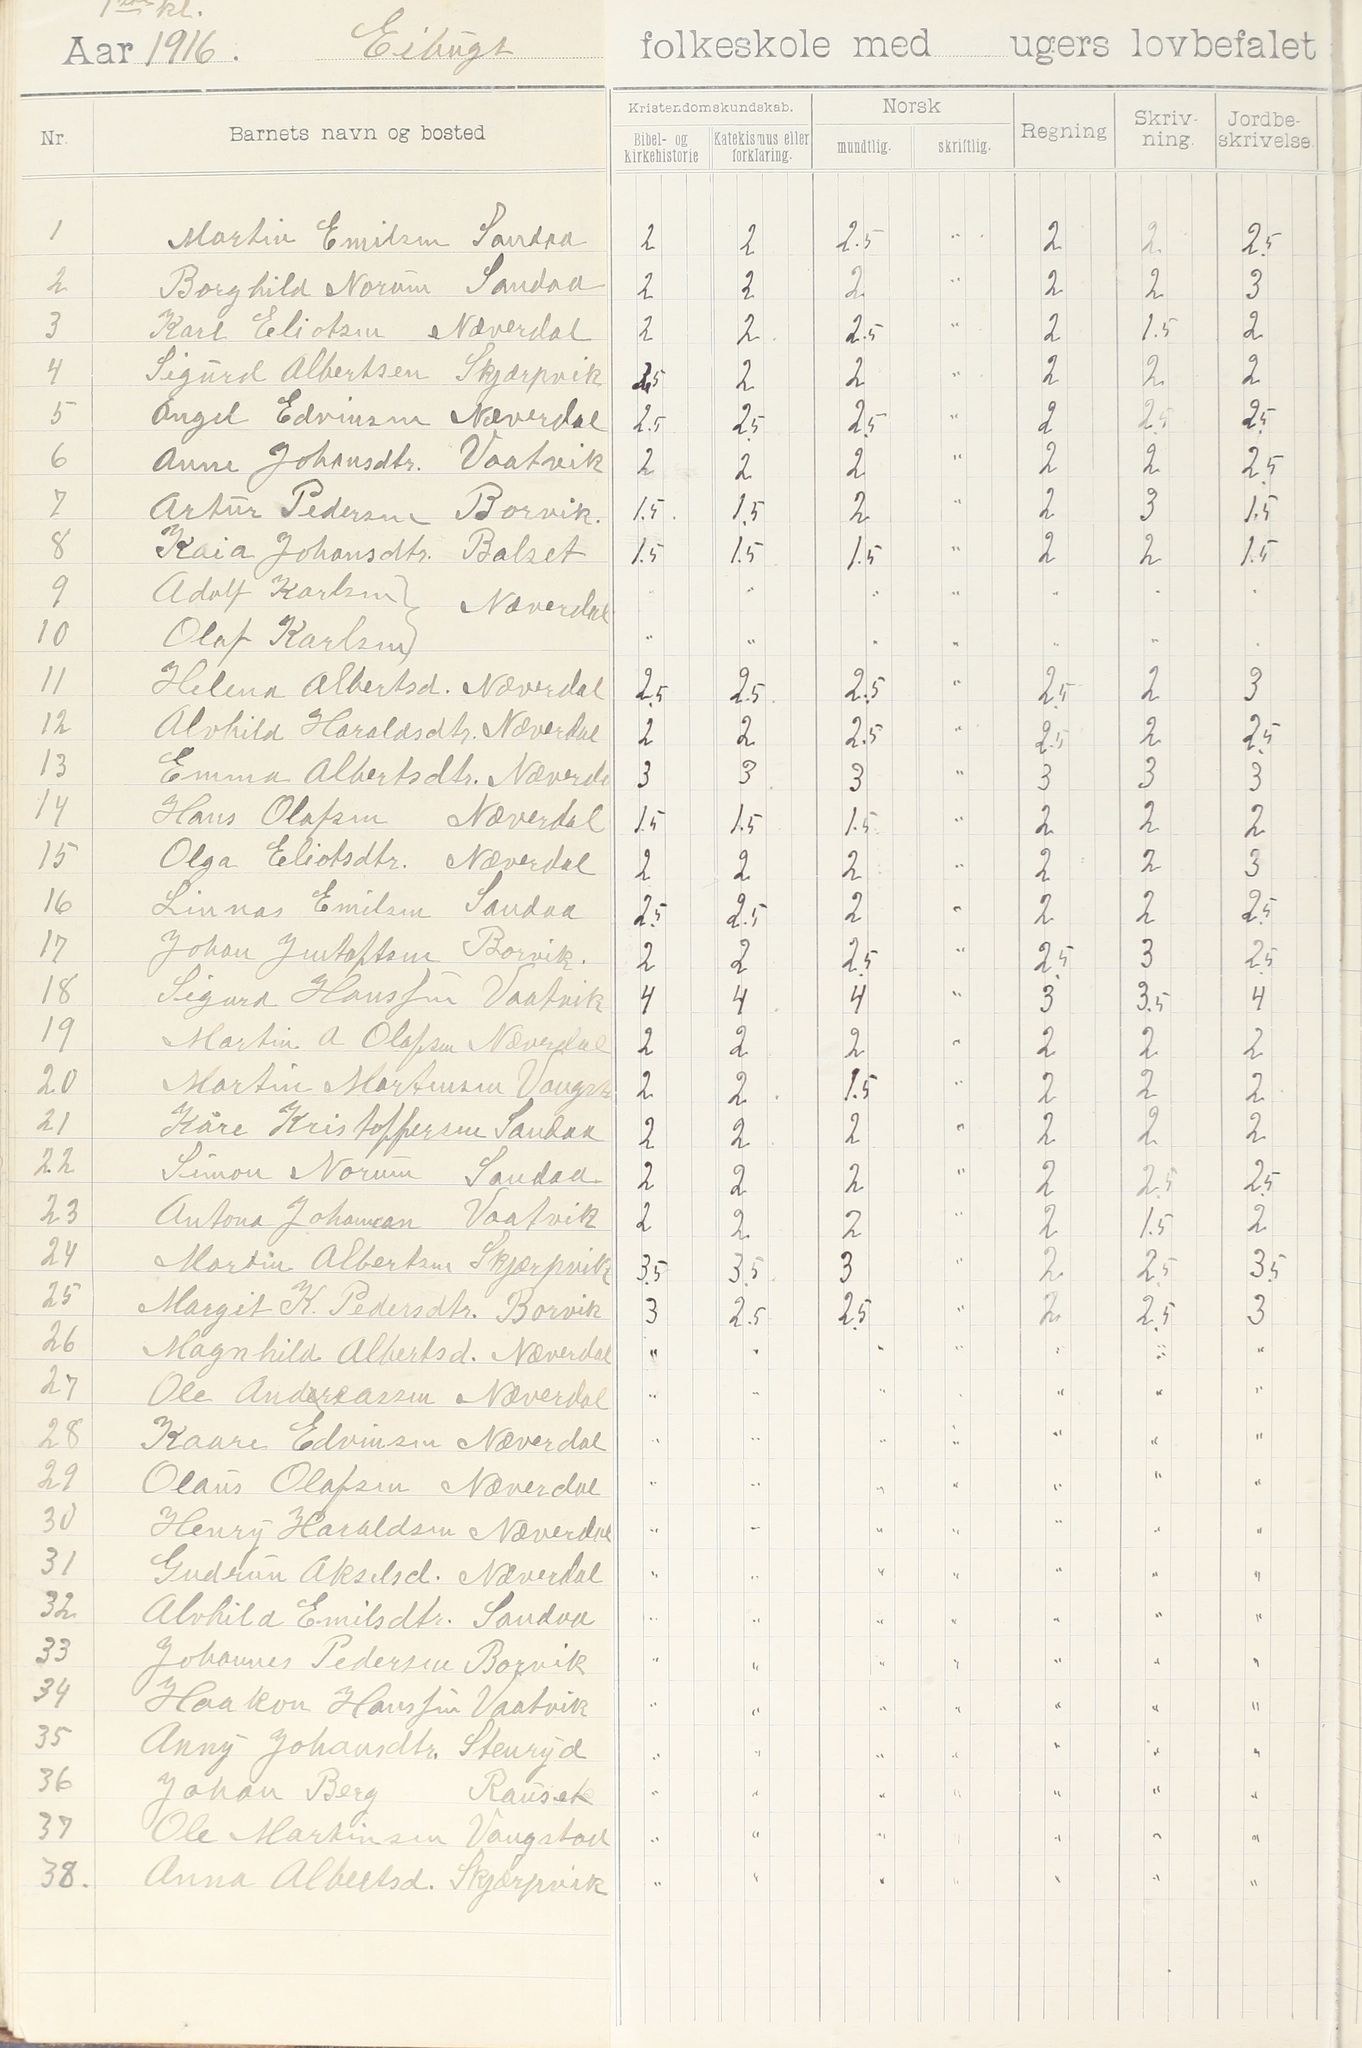 1ste kl.
Aar 1916. Eibugt folkeskole med ugers lovbefalet
Nr. Barnets navn og bosted Kristendomskundskab. Norsk Regning Skriv-ning. Jordbe-skrivelse.
Bibel- og kirkehistorie Katekismus eller forklaring. mundtlig. skriftlig.
1 Martin Emilsen Sandaa 2 2 2.5 " 2 2 2.5
2 Borghild Norum Sandaa 2 2 2 " 2 2 3
3 Karl Eliotsen Næverdal 2 2 2.5 " 2 1.5 2
4 Sigurd Albertsen Skjærpvik 2.5 2 2 " 2 2 2
5 Angel Edvinsen Næverdal 2.5 2.5 2.5 " 2 2.5 2.5
6 Anne Johansdtr. Vaatvik 2 2 2 " 2 2 2.5
7 Artur Pedersen Borvik. 1.5 1.5 2 " 2 3 1.5
8 Kaia Johansdtr. Balset 1.5 1.5 1.5 " 2 2 1.5
9 Adolf Karlsen } Næverdal " " " " " " "
10 Olaf Karlsen } " " " " " " "
11 Helena Albertsd. Næverdal 2.5 2.5 2.5 " 2.5 2 3
12 Alvhild Haraldsdtr. Næverdal 2 2 2.5 " 2.5 2 2.5
13 Emma Albertsdtr. Næverda 3 3 3 " 3 3 3
14 Hans Olafsen Næverdal 1.5 1.5 1.5 " 2 2 2
15 Olga Eliotsdtr. Næverdal 2 2 2 " 2 2 3
16 Linnas Emilsen Sandaa 2.5 2.5 2 " 2 2 2.5
17 Johan Justoftsen Borvik. 2 2 2.5 " 2.5 3 2.5
18 Sigurd Hanssen Vaatvik 4 4 4 " 3 3.5 4
19 Martin A Olafsen Næverdal 2 2 2 " 2 2 2
20 Martin Martinsen Vangst 2 2 1.5 " 2 2 2
21 Kåre Kristoffersen Sandaa 2 2 2 " 2 2 2
22 Simon Norum Sandaa 2 2 2 " 2 2.5 2.5
23 Antona Johansan Vaatvik 2 2 2 " 2 1.5 2
24 Martin Albertsen Skjærpvik 3.5 3.5 3 " 2 2.5 3.5
25 Margit K. Pedersdtr. Borvik 3 2.5 2.5 " 2 2.5 3
26 Magnhild Albertsd. Næverdal " " " " " " "
27 Ole Andreassen Næverdal " " " " " " "
28 Kaare Edvinsen Næverdal " " " " " " "
29 Olaus Olafsen Næverdal " " " " " " "
30 Henry Haraldsen Næverdal " " " " " " "
31 Gudrun Akselsd. Næverdal " " " " " " "
32 Alvhild Emilsdtr. Sandaa " " " " " " "
33 Johannes Pedersen Borvik " " " " " " "
34 Haakon Hanssen Vaatvik " " " " " " "
35 Anny Johansdtr. Stenryd " " " " " " "
36 Johan Berg Rausek " " " " " " "
37 Ole Martinsen Vangstad " " " " " " "
38. Anna Albertsd. Skjærpvik " " " " " " "